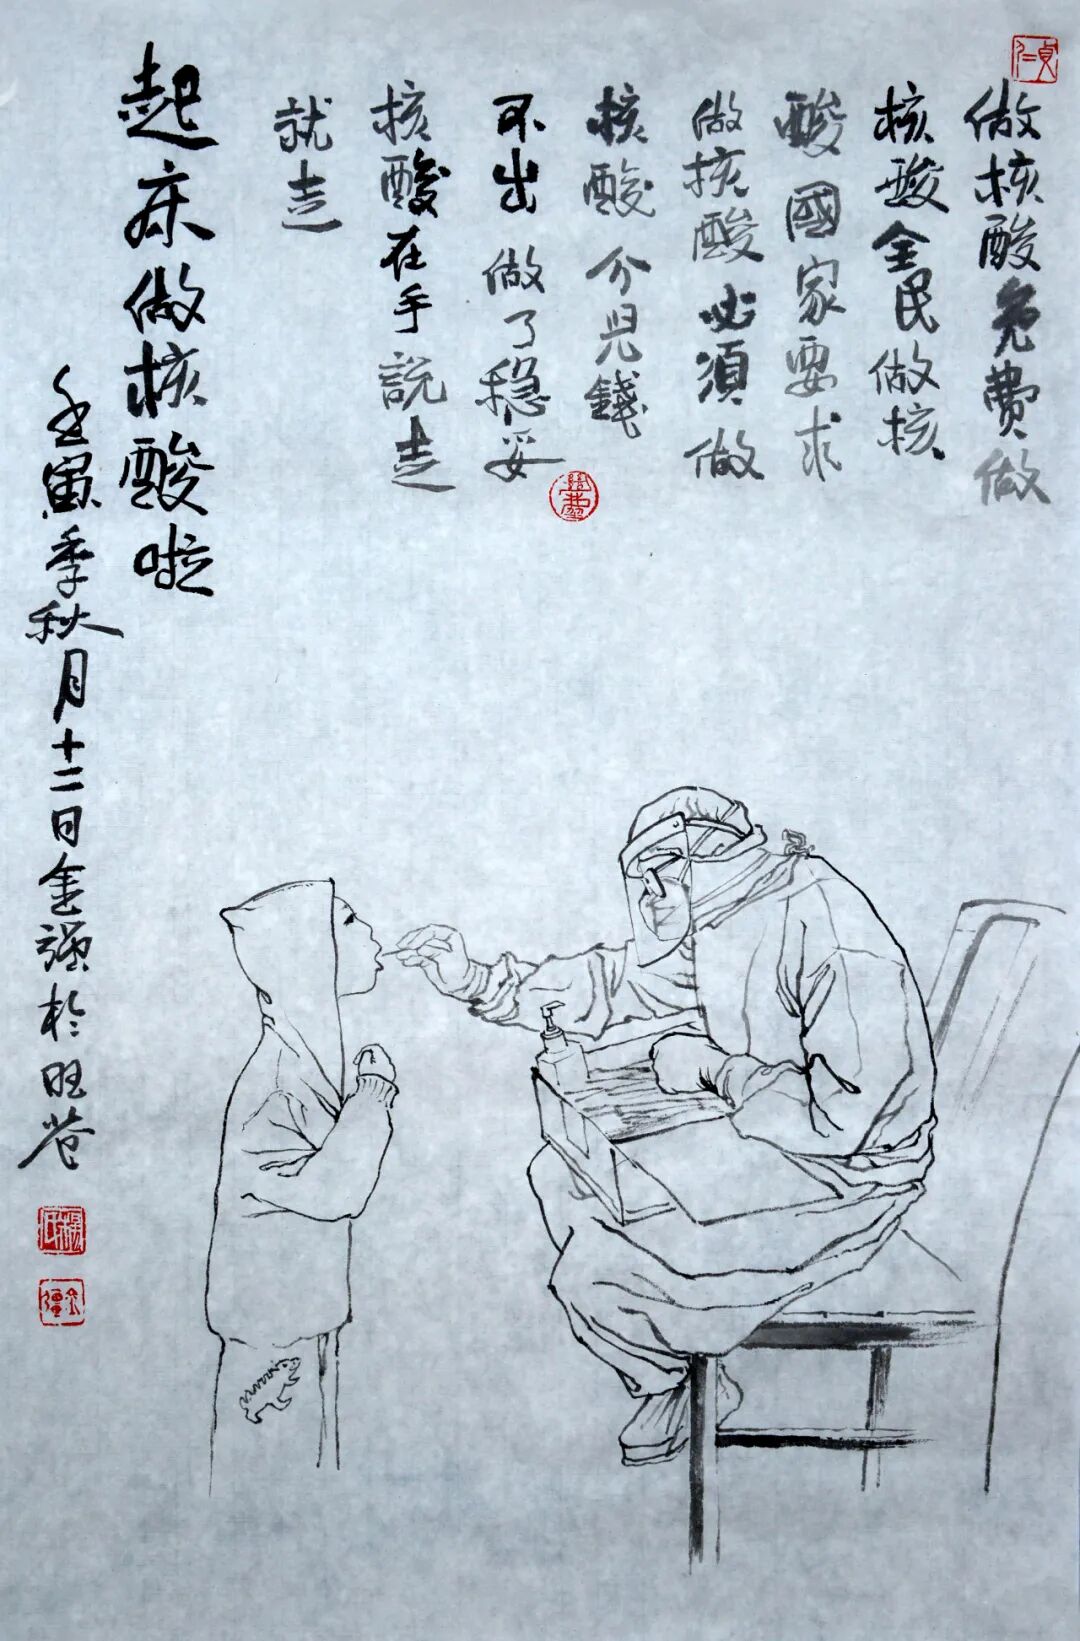 做核酸免費做
核酸全民做核
酸國家要求
做核酸必須做
核酸分兒錢
不出做了稳妥
核酸在手説走
就走
起床做核酸啦
壬寅季秋月十二日金强於旺苍